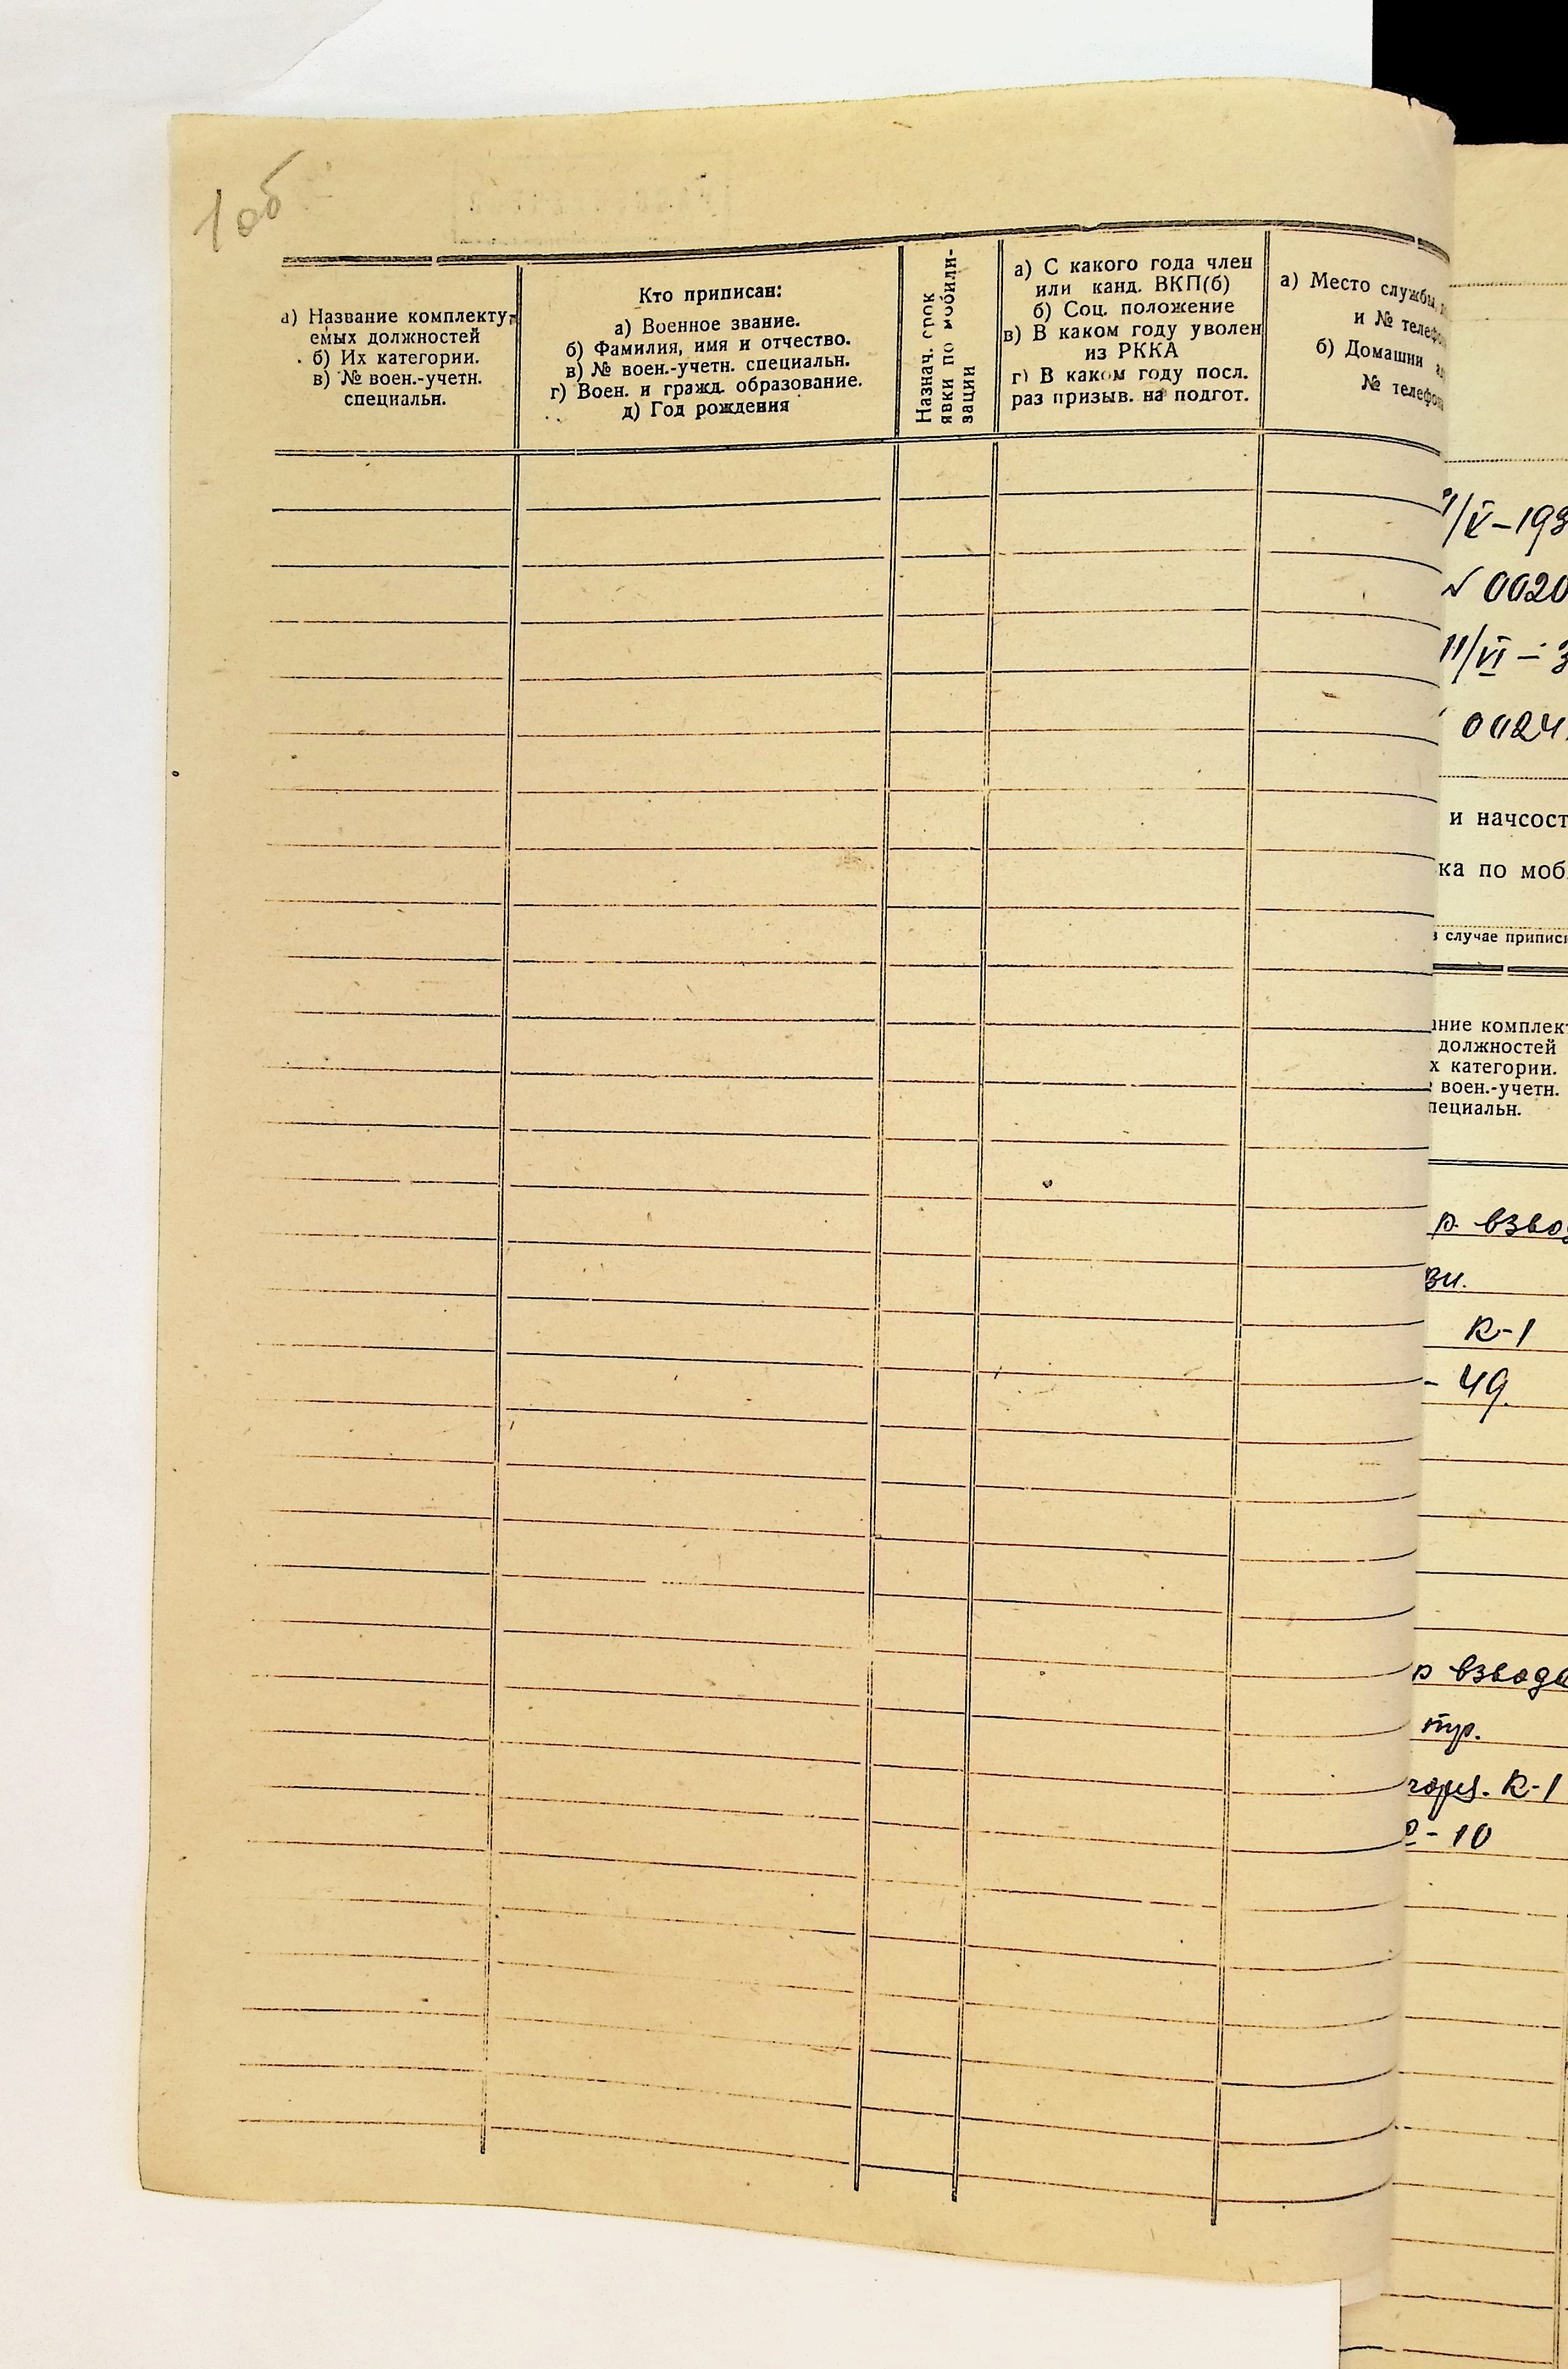 1 об
а) Название комплекту-
емых должностей
б) Их категории.
в) № воен.-учетн.
специальн.
Кто приписан:
а) Военное звание.
б) Фамилия, имя и отчество.
в) № воен.-учетн. специальн.
г) Воен. и гражд. образование.
д) Год рождения
Назнач. срок
явки по мобили-
зации
а) С какого года член
или канд. ВКП(б)
б) Соц. положение
в) В каком году уволен
из РККА
г) В каком году посл.
раз призыв. на подгот.
а) Место службы,
и № телефо
б) Домашни
№ телефон
/V-193
0020
11/VI - 3
0024
и начсост
ка по моб
случае припис
ание комплек
должностей
х категории.
воен.-учетн.
пециальн.
р. взвод
зи.
К-1
- 49.
р взвода
пур.
гория. К-1
- 10